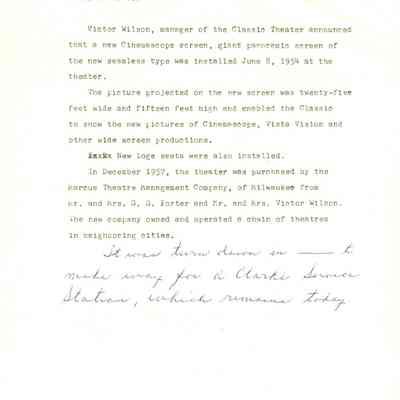 Victor Wilson, manager of the Classic Theater announced
that a new Cinemascope screen, giant panoramic screen of
the new seamless type was installed June 8, 1954 at the
theater.
The picture projected on the new screen was twenty-five
feet wide and fifteen feet high and enabled the Classic
to show the new pictures of Cinemascope, Vista Vision and
other wide screen productions.
New loge seats were also installed.
In December 1957, the theater was purchased by the
Marcus Theatre Management Company, of Milwaukee from
Mr. and Mrs. G. G. Porter and Mr. and Mrs. Victor Wilson.
The new company owned and operated a chain of theatres
in neighboring cities.
It was turn down in —— to
make way for a Clarks Service
Station, which remains today.